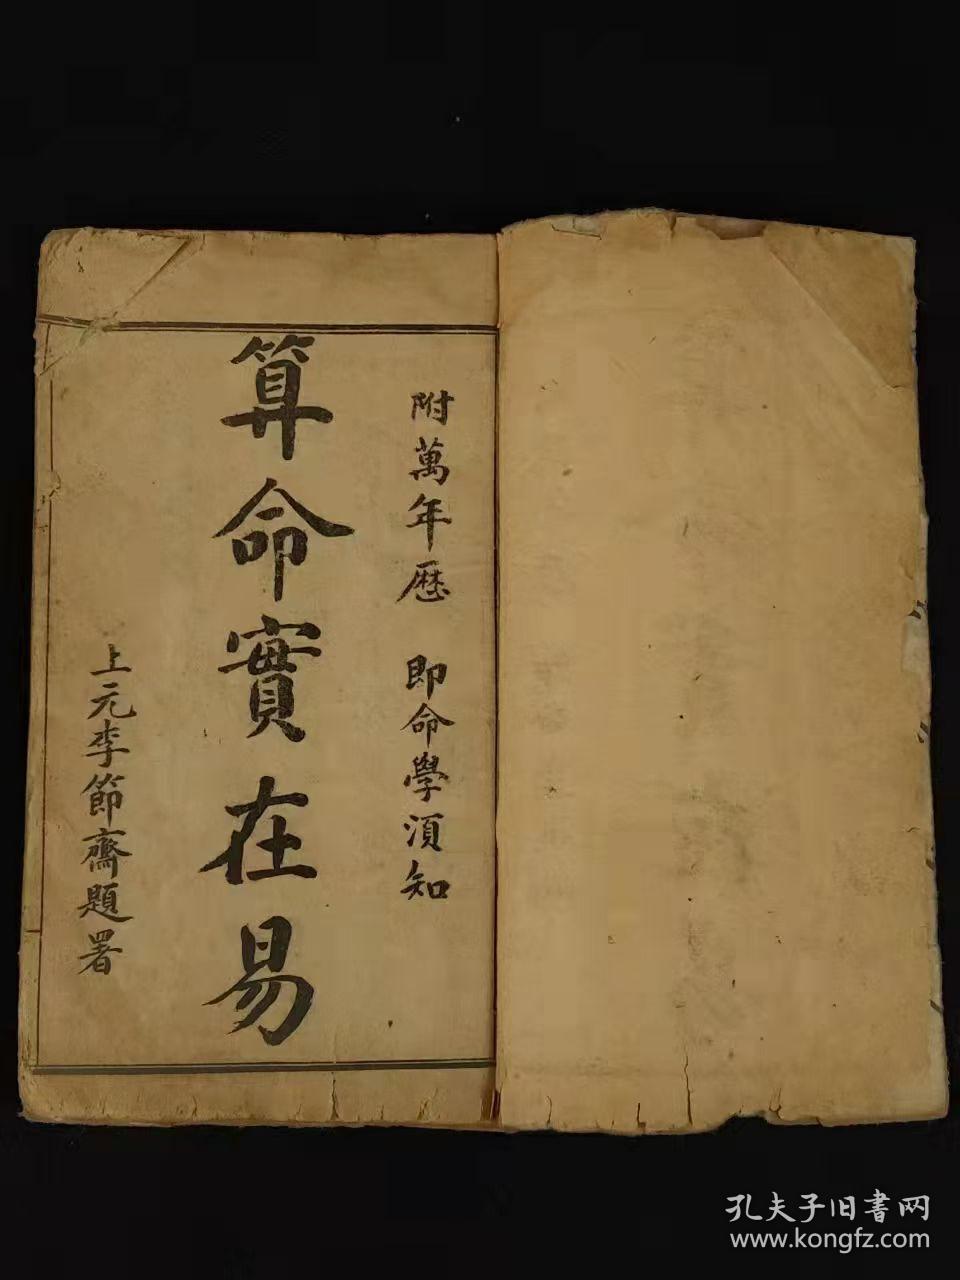 附萬年歷 即命學須知
算命實在易
上元李節齋題署
孔夫子旧書网
www.kongfz.com